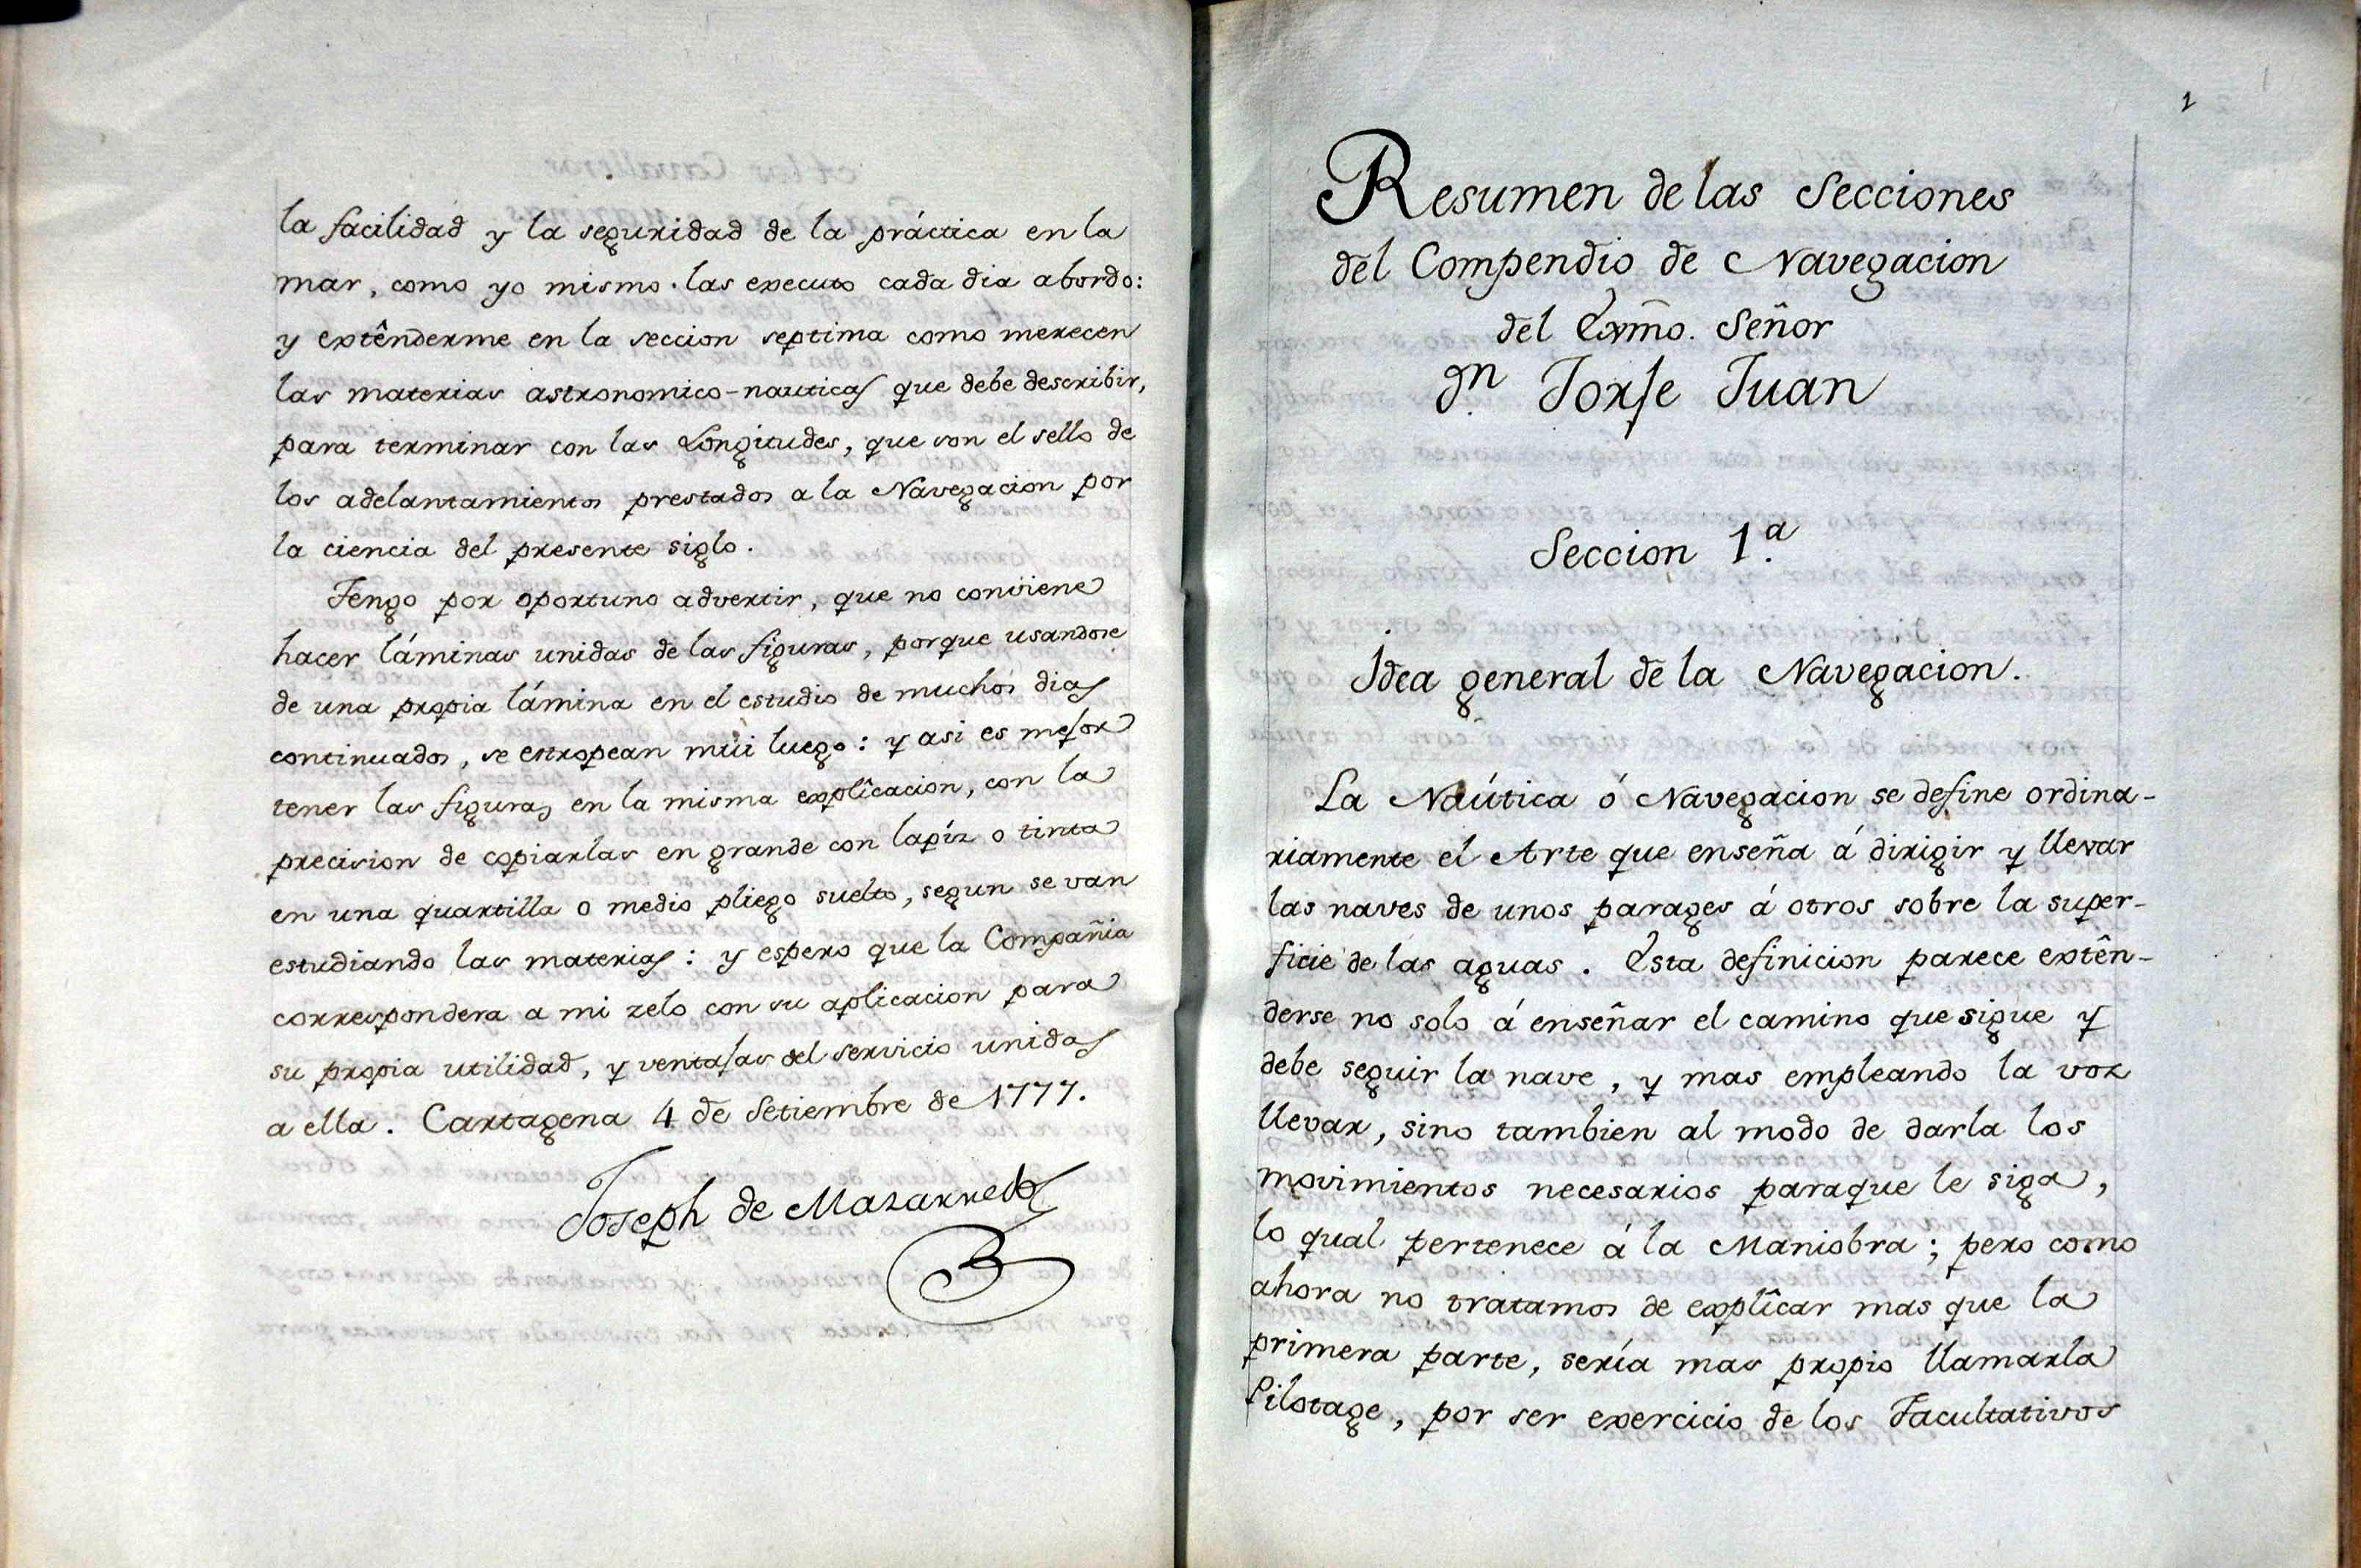 la facilidad y la seguridad de la práctica en la
mar, como yo mismo las executo cada dia abordo:
y extênderme en la seccion septima como merecen
las materias astronomico-nauticas que debe describir,
para terminar con las Longitudes, que son el sello de
los adelantamientos prestados a la Navegacion por
la ciencia del presente siglo.
Tengo por oportuno advertir, que no conviene
hacer láminas unidas de las figuras, porque usandose
de una propia lámina en el estudio de muchos dias
continuados, se estropean mui luego: y asi es mejor
tener las figuras en la misma explîcacion, con la
precision de copiarlas en grande con lapíz o tinta
en una quartilla o medio pliego suelto, segun se van
estudiando las materias: y espero que la Compañia
correspondera a mi zelo con su aplicacion para
su propia utilidad, y ventajas del servicio unidas
a ella. Cartagena 4 de Setiembre de 1777.
Joseph de Mazarredo
1
Resumen de las Secciones
del Compendio de Navegacion
del Exm̃o. Señor
Dn. Jorje Juan
Seccion 1.ª
Idea general de la Navegacion.
La Naútica ó Navegacion se define ordina-
riamente el Arte que enseña á dirigir y llevar
las naves de unos parages á otros sobre la super-
ficie de las aguas. Esta definicion parece extên-
derse no solo á enseñar el camino que sigue y
debe seguir la nave, y mas empleando la voz
llevar, sino tambien al modo de darla los
movimientos necesarios paraque le siga,
lo qual pertenece á la Maniobra; pero como
ahora no tratamos de explîcar mas que la
primera parte, sería mas propio llamarla
Pilotage, por ser exercicio de los Facultativos